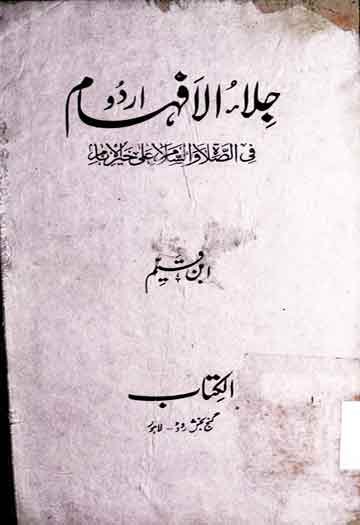 جلاءُ الاَفہام اردُو
فی الصَّلاۃ والسَّلام علیٰ خیر الانام
ابنِ قیّم
الکتاب
گنج بخش روڈ - لاہور